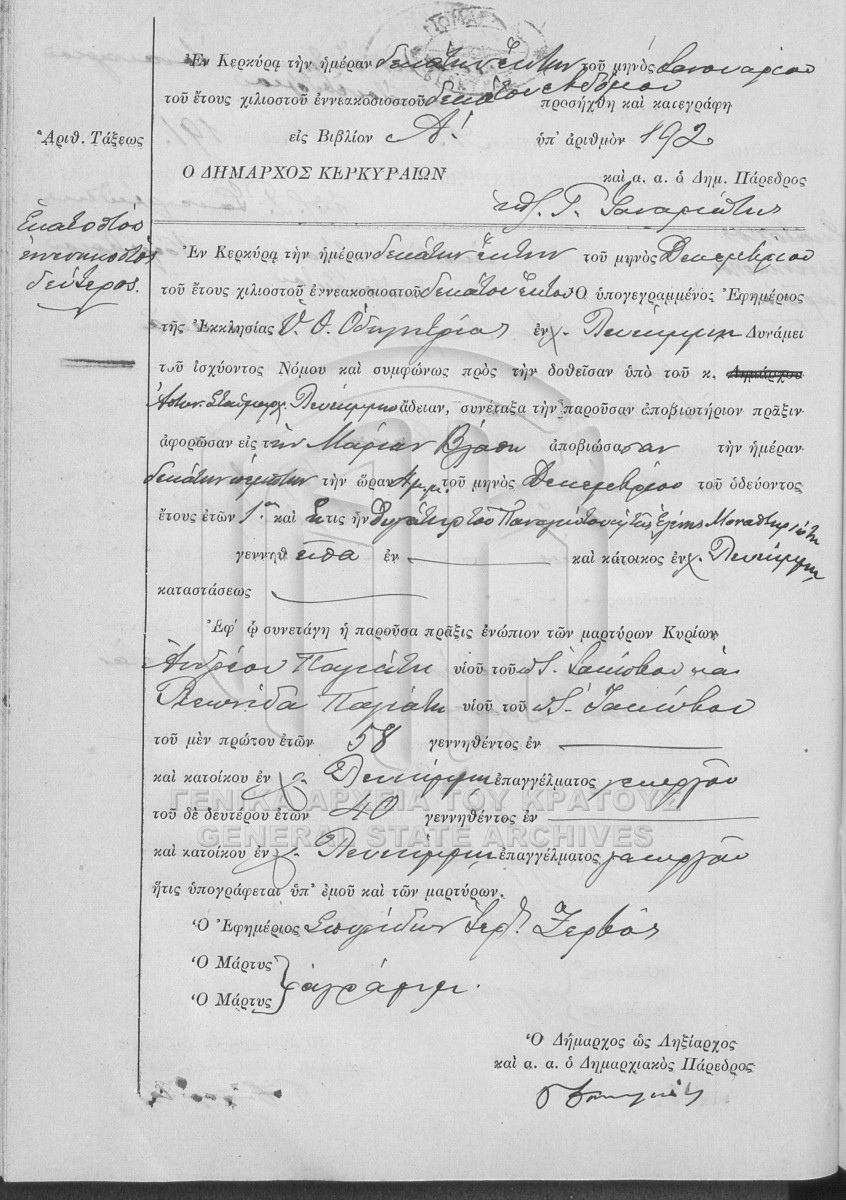 Ἐν Κερκύρᾳ τὴν ἡμέραν δεκάτην ἕκτην τοῦ μηνὸς Ἰανουαρίου
τοῦ ἔτους χιλιοστοῦ ἐννεακοσιοστοῦ δεκάτου ἑβδόμου προσήχθη καὶ κατεγράφη
Ἀριθ. Τάξεως
εἰς Βιβλίον Α! ὑπ' ἀριθμὸν 192
Ο ΔΗΜΑΡΧΟΣ ΚΕΡΚΥΡΑΙΩΝ
καὶ α. α. ὁ Δημ. Πάρεδρος
Γ.
Ἑκατοστὸς
ἐννενηκοστὸς
δεύτερος.
Ἐν Κερκύρᾳ τὴν ἡμέραν δεκάτην ἕκτην τοῦ μηνὸς Δεκεμβρίου
τοῦ ἔτους χιλιοστοῦ ἐννεακοσιοστοῦ δεκάτου ἕκτου Ὁ ὑπογεγραμμένος Ἐφημέριος
τῆς Ἐκκλησίας Ὑ. Θ. Ὁδηγητρίας ἐν χ. Λευκίμμῃ Δυνάμει
τοῦ ἰσχύοντος Νόμου καὶ συμφώνως πρὸς τὴν δοθεῖσαν ὑπὸ τοῦ κ. Δημάρχου
Ἀστυν. Σταθμάρχ. Λευκίμμης ἄδειαν, συνέταξα τὴν παροῦσαν ἀποβιωτήριον πρᾶξιν
ἀφορῶσαν εἰς τὴν Μαρίαν Βλάση ἀποβιώσασαν τὴν ἡμέραν
δεκάτην πέμπτην τὴν ὥραν τοῦ μηνὸς Δεκεμβρίου τοῦ ὁδεύοντος
ἔτους ἐτῶν καὶ ἥτις ἦν θυγάτηρ τοῦ Παναγιώτου καὶ τῆς Ἑλένης
γεννηθεῖσα ἐν καὶ κάτοικος ἐν χ. Λευκίμμης
καταστάσεως
Ἐφ' ᾧ συνετάγη ἡ παροῦσα πρᾶξις ἐνώπιον τῶν μαρτύρων Κυρίων
Ἀνδρέου Παγιάτη υἱοῦ τοῦ Ἰακώβου καὶ
Λεωνίδα Παγιάτη υἱοῦ τοῦ Ἰακώβου
τοῦ μὲν πρώτου ἐτῶν 58 γεννηθέντος ἐν
καὶ κατοίκου ἐν χ. Λευκίμμη ἐπαγγέλματος γεωργοῦ
ΓΕΝΙΚΑ ΑΡΧΕΙΑ ΤΟΥ ΚΡΑΤΟΥΣ
τοῦ δὲ δευτέρου ἐτῶν 40 γεννηθέντος ἐν
GENERAL STATE ARCHIVES
καὶ κατοίκου ἐν χ. Λευκίμμη ἐπαγγέλματος γεωργοῦ
ἥτις ὑπογράφεται ὑπ' ἐμοῦ καὶ τῶν μαρτύρων.
Ὁ Ἐφημέριος Σπυρίδων Ἱερ. Ζερβὸς
Ὁ Μάρτυς
ἀγράμ.
Ὁ Μάρτυς
Ὁ Δήμαρχος ὡς Ληξίαρχος
καὶ α. α. ὁ Δημαρχιακὸς Πάρεδρος